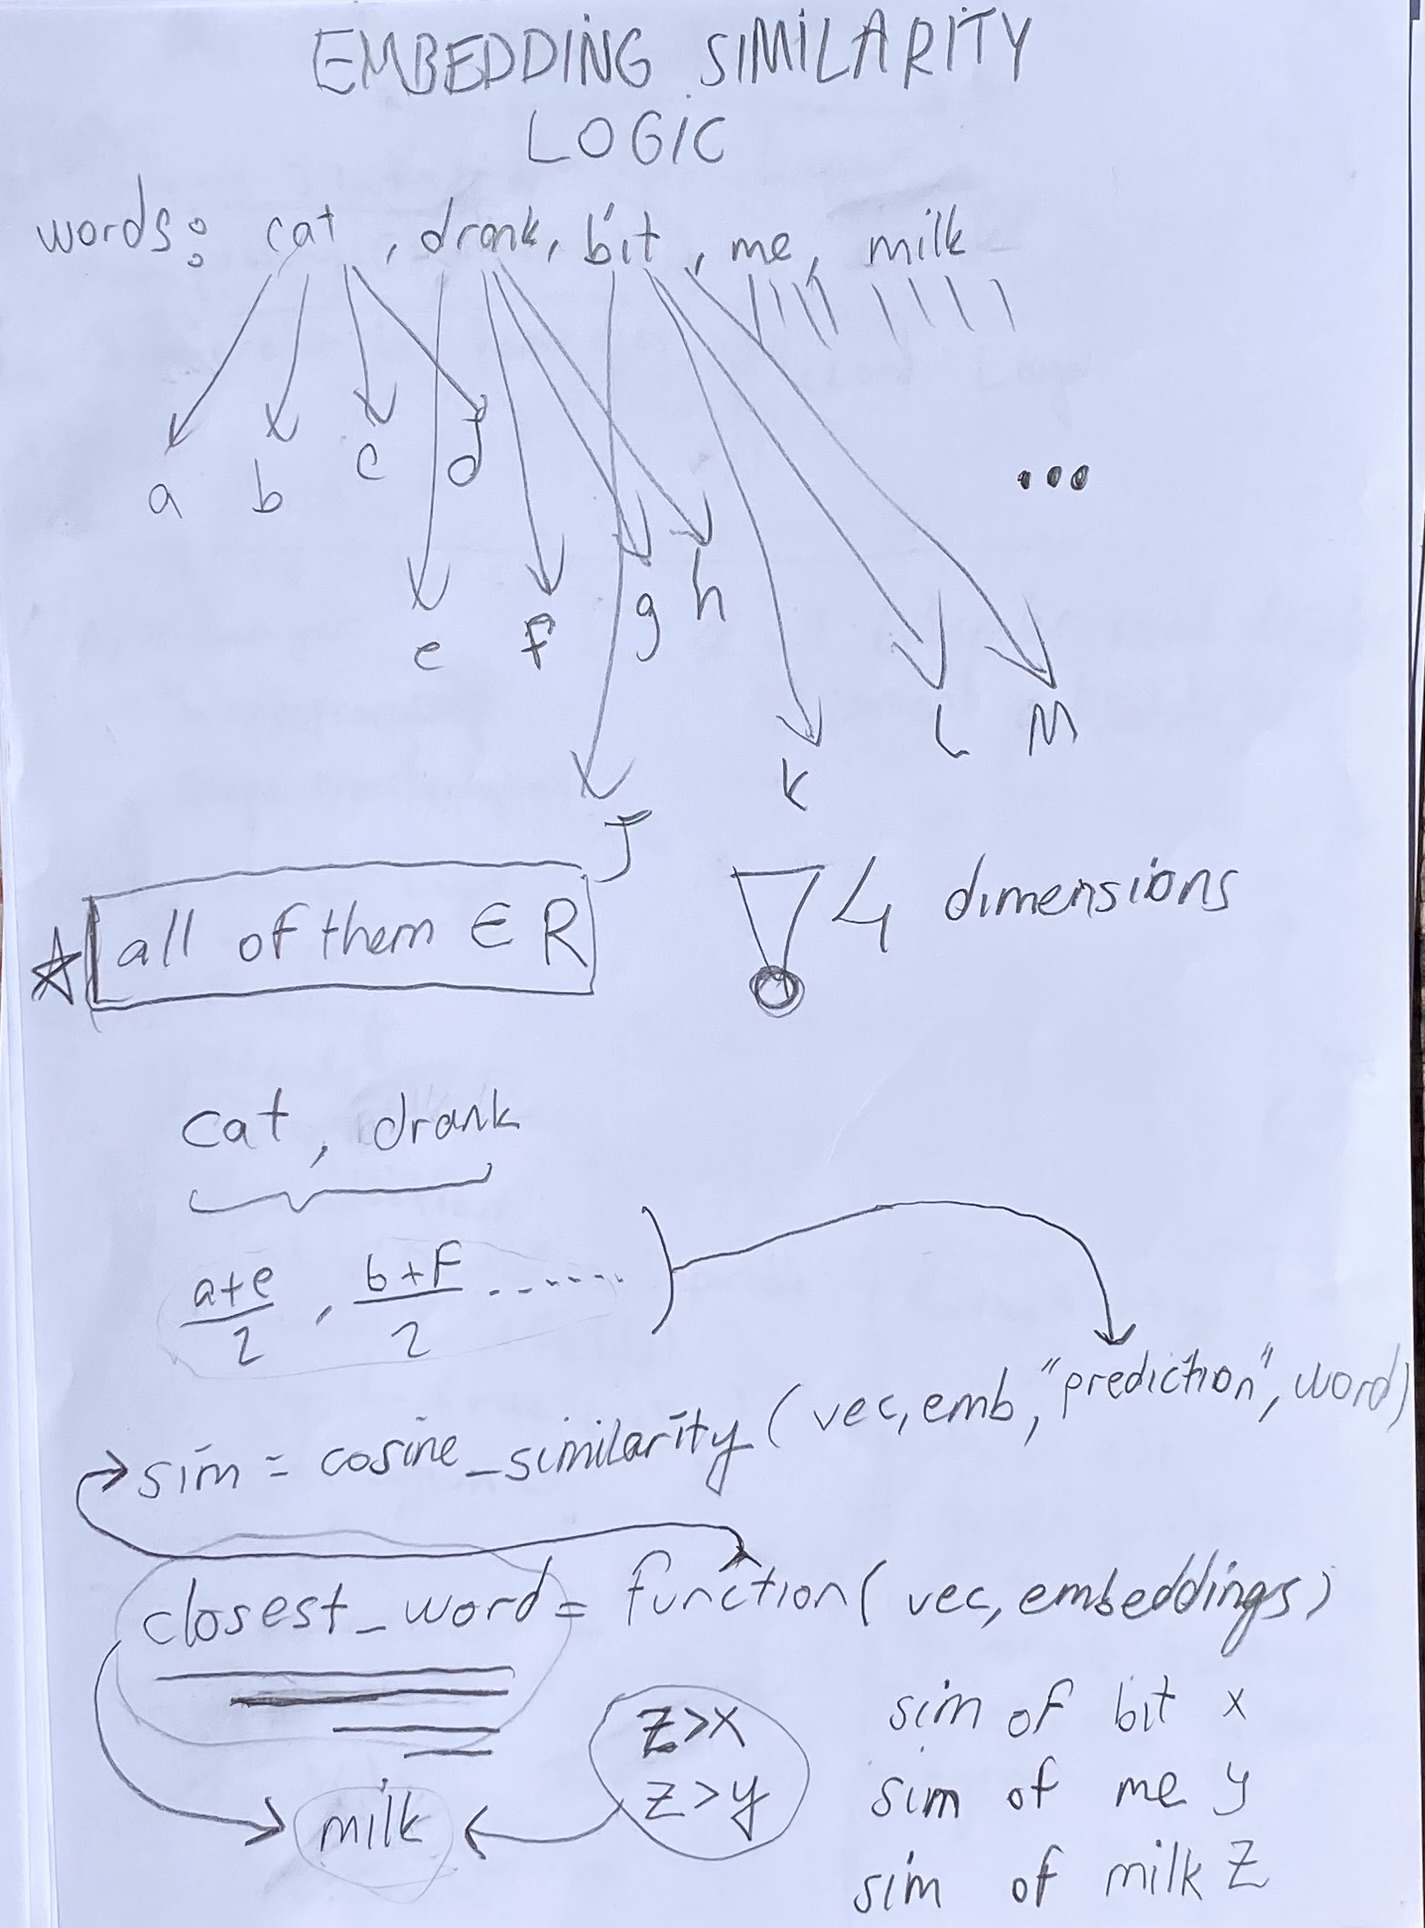 EMBEDDING SIMILARITY
LOGIC
words: cat, drank, bit, me, milk
a b c d
...
e f g h
J K L M
all of them ∈ R
4 dimensions
cat, drank
a+e/2, b+f/2 ......
sim = cosine_similarity (vec, emb, "prediction", word)
closest_word = function( vec, embeddings)
z>x
z>y
milk
sim of bit x
sim of me y
sim of milk z